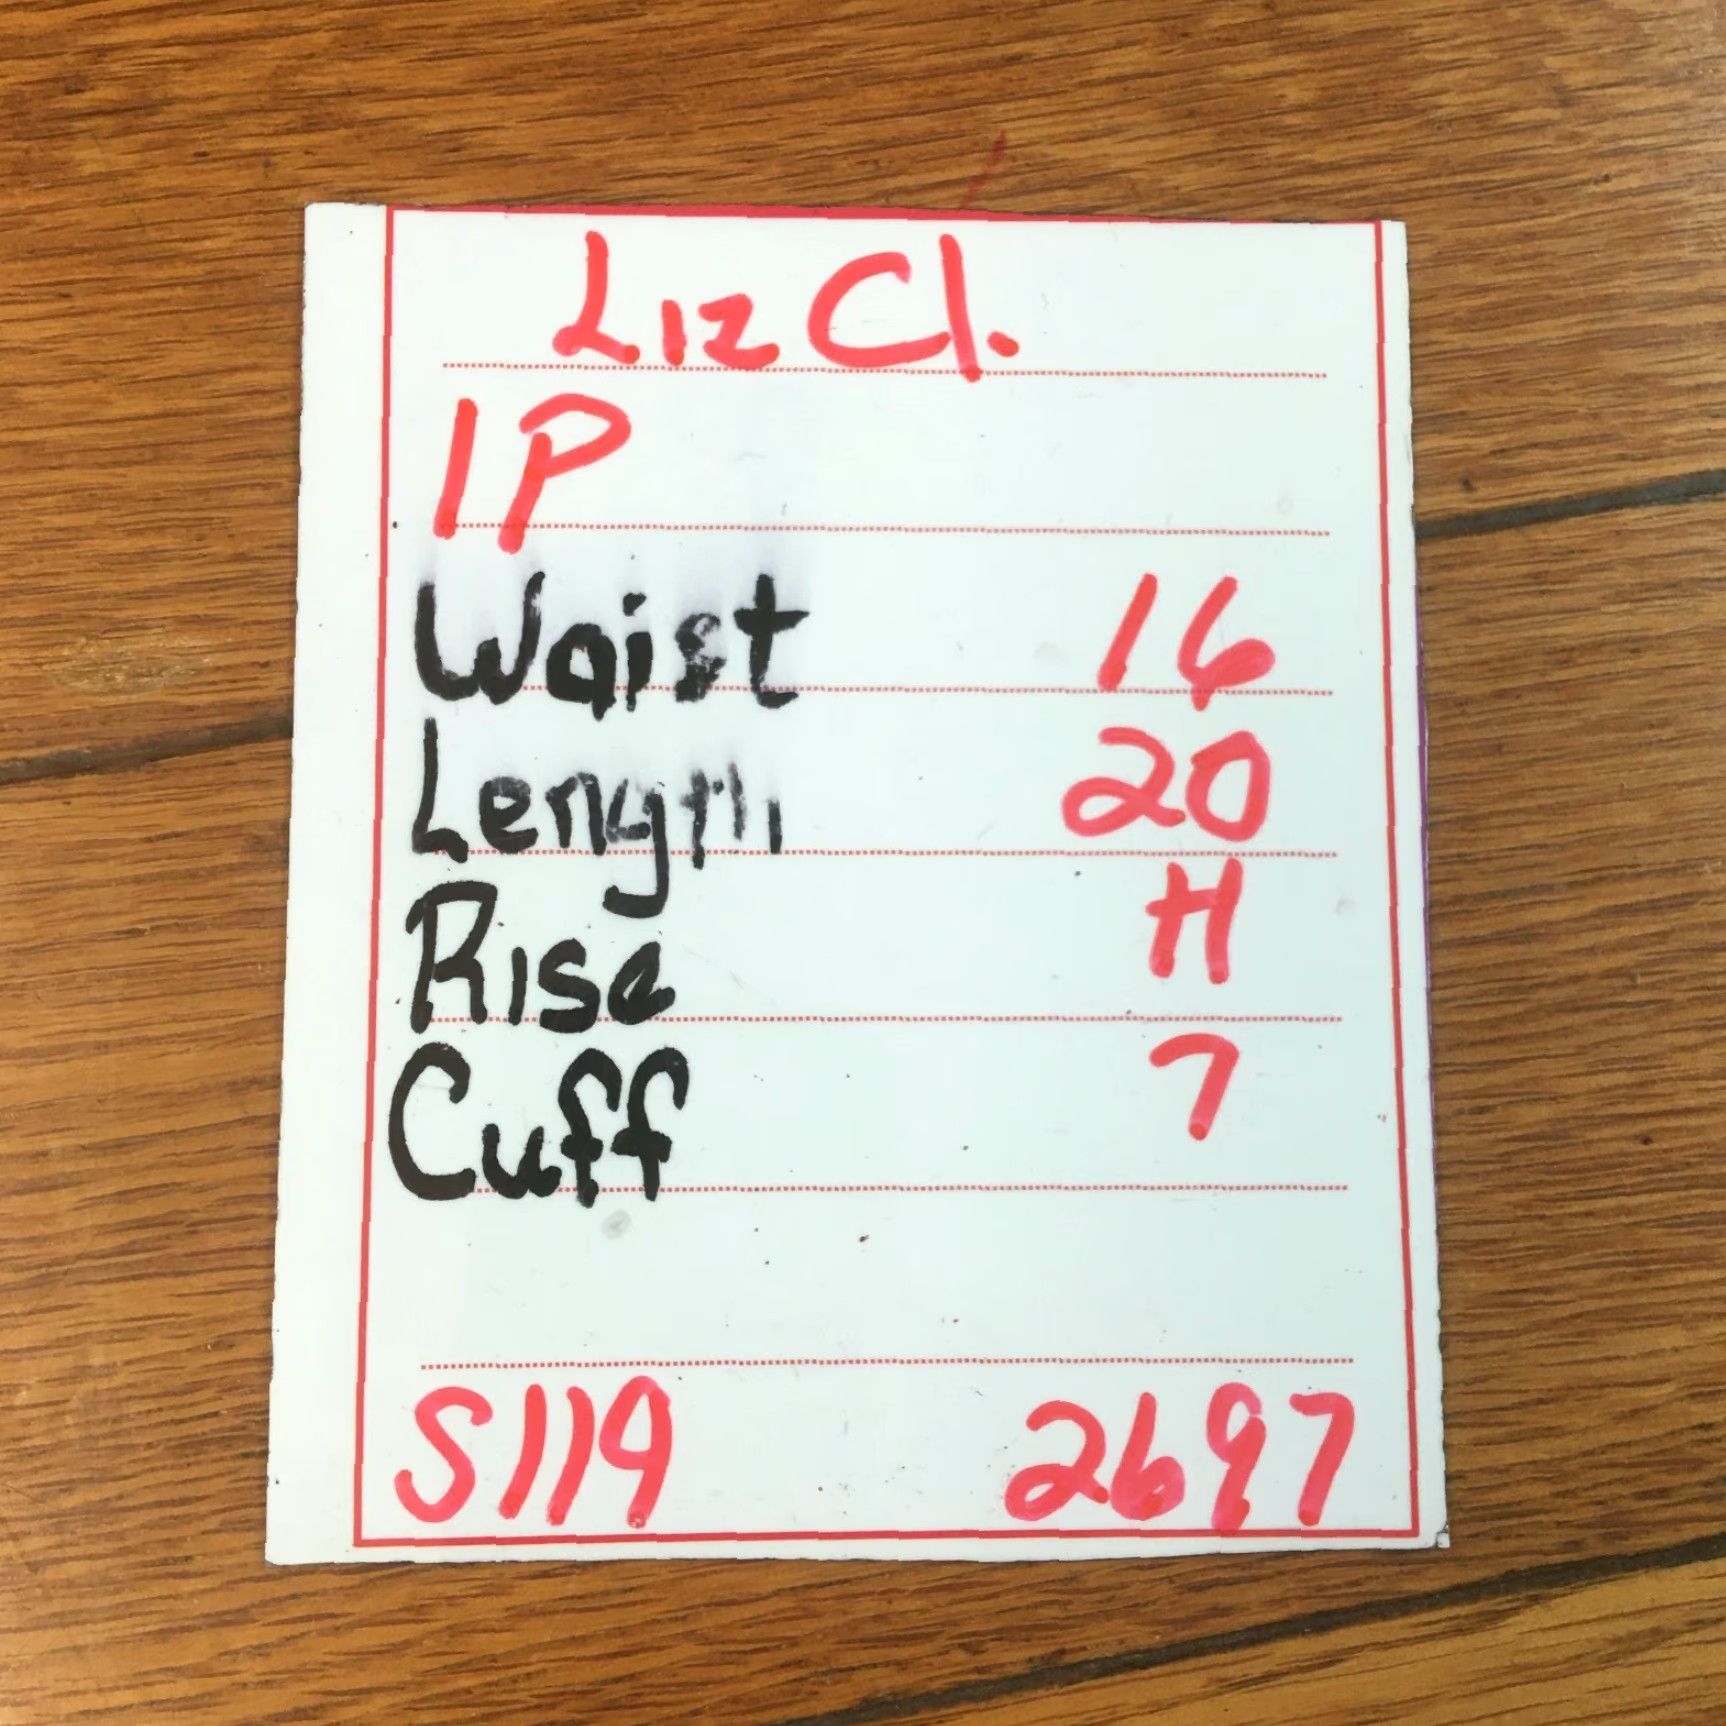 Liz Cl.
1P
Waist 16
Length 20
Rise H
Cuff 7
S119 2697